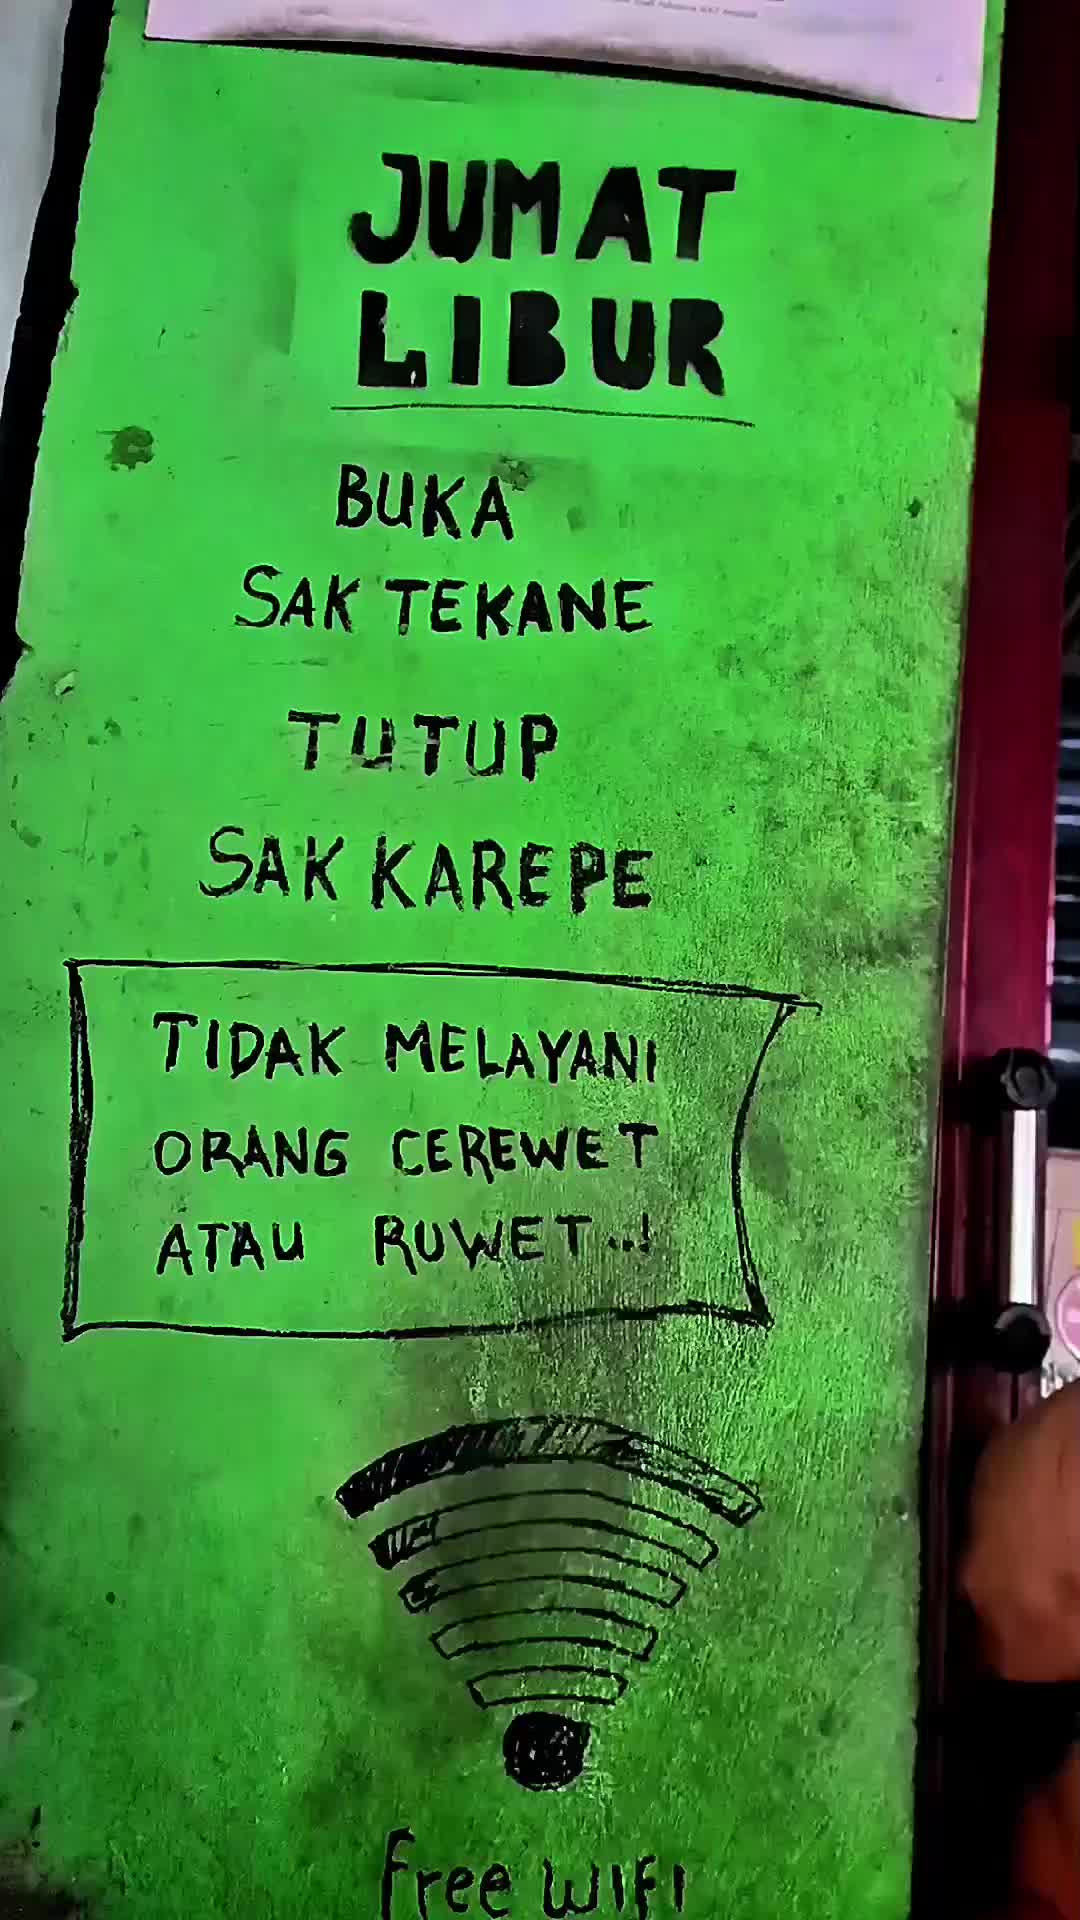 JUMAT
LIBUR
BUKA
SAK TEKANE
TUTUP
SAK KAREPE
TIDAK MELAYANI
ORANG CEREWET
ATAU RUWET..!
free wifi